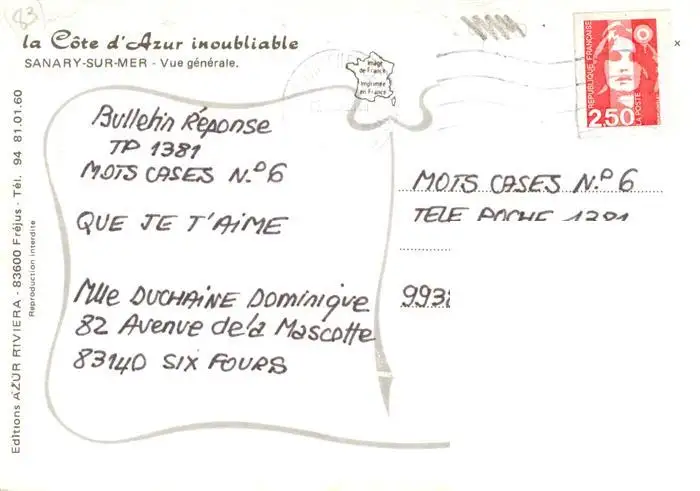 83
la Côte d'Azur inoubliable
SANARY-SUR-MER - Vue générale.
Image
de France
Imprimée
en France
REPUBLIQUE FRANÇAISE
LA POSTE
2,50
Bulletin Réponse
TP 1381
MOTS CASES N.º 6
QUE JE T'AIME
Mlle DUCHAINE Dominique
82 Avenue de la Mascotte
83140 SIX FOURS
MOTS CASES N.º 6
TELE POCHE 1381
993
Editions AZUR RIVIERA - 83600 Fréjus - Tél. 94 81.01.60
Reproduction interdite